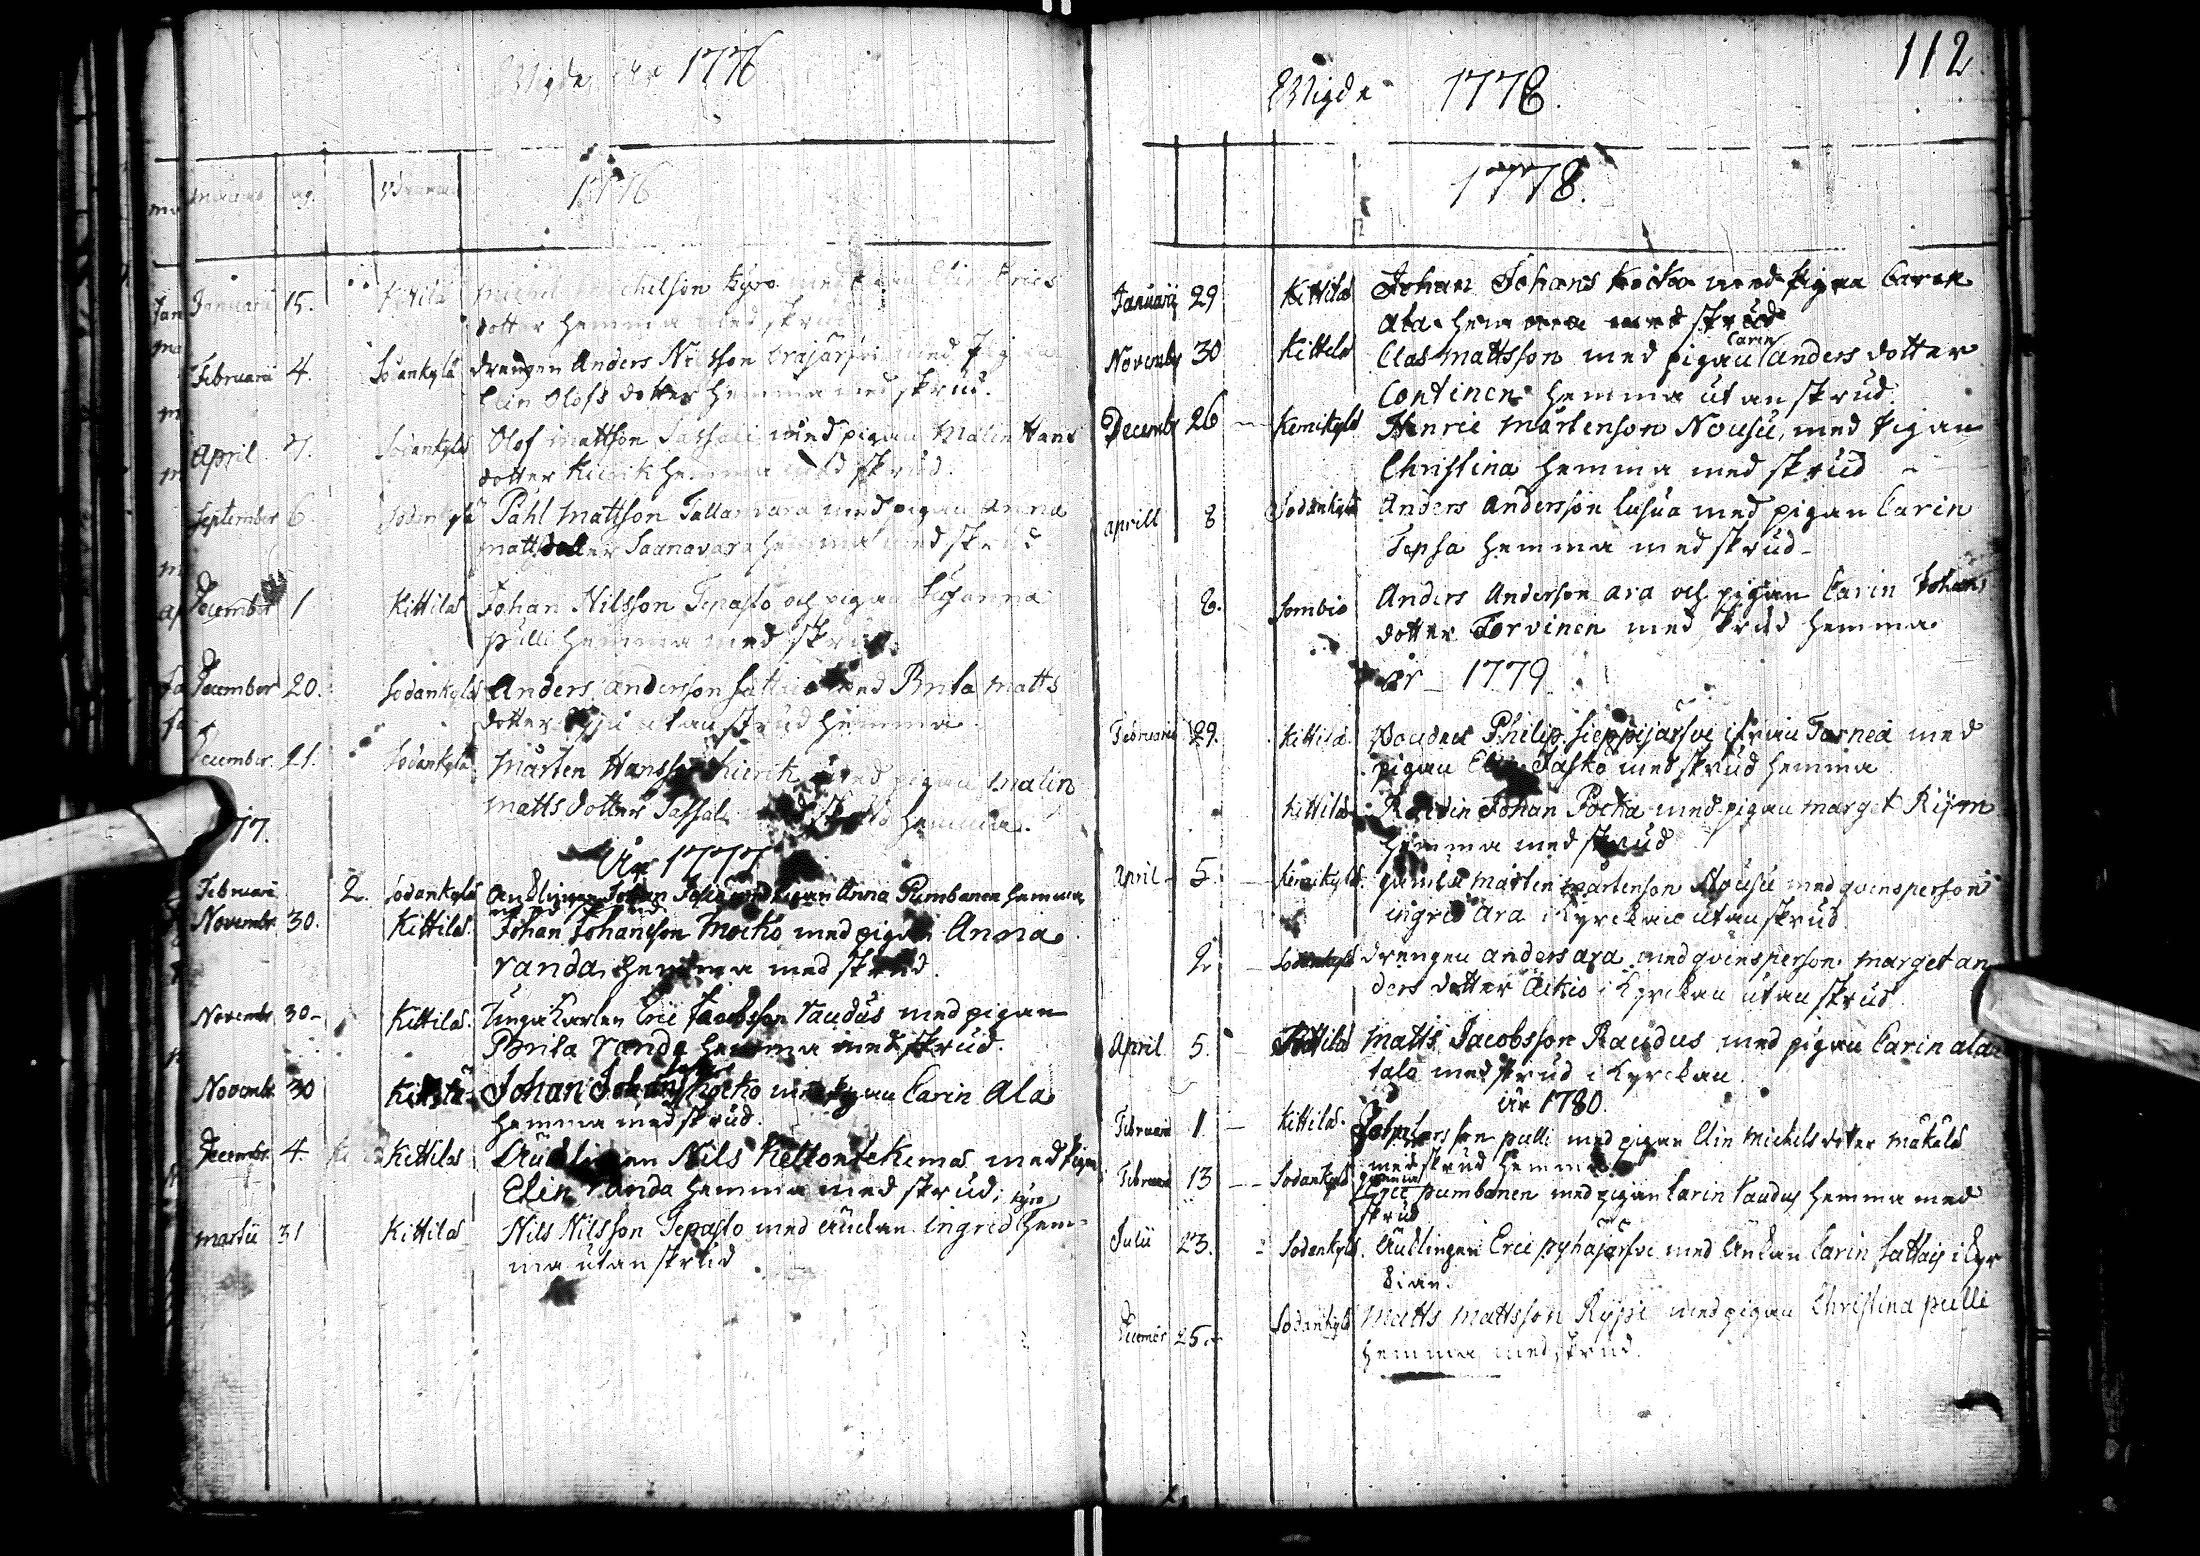 Wigde åhr 1776
1776
Januarii 15. Kittilä Michel Michelson Kyrö med pigan Elin Erics
dotter hemma med skrud
Februarii 4. Sodankylä drengen Anders Nilsson med
Elin Olofs dotter hemma med skrud.
April 7. Sodankylä Olof Mattson Sassali med pigan Malin Hans
dotter Kierik hemma med skrud.
September 6 Sodankylä Påhl Mattson Tallanvara med pigan Anna
Matts dotter Saanavara hemma med skrud
December 1 Kittilä Johan Nilsson Tepasto och pigan Susanna
Pulli hemma med skrud.
December 20. Sodankylä Anders Andersson Sattio med Brita Matts
dotter utan skrud hemma.
December 21. Sodankylä Mårten Hansson Kierik med pigan Malin
Matts dotter Sassali med skrud hemma.
77.
År 1777
Februarii 2. Sodankylä Johan med pigan Anna Pumbanen hemma
med skrud
Novembr 30. Kittilä Johan Johansson Mocko med pigan Anna
Vanda, hemma med skrud.
Novembr 30 Kittilä Unga Karlen Eric Jacobsson Raudus med pigan
Brita Vanda hemma med skrud.
Novembr 30 Kittilä Johan Johans Kocko med pigan Carin Ala
hemma med skrud.
Decembr 4. Kittilä Äncklingen Nils Keltontekemä med pigan
Elin Vanda hemma med skrud.
Kyrö
Martii 31 Kittilä Nils Nilsson Tepasto med änckan Ingrid hem-
ma utan skrud
112
Wigde 1778.
1778.
Januarii 29 Kittilä Johan Johans Kocko med pigan Carin
Ala hemma med skrud
Carin
Novembr 30 Kittilä Clas Mattsson med pigan Anders dotter
Continen hemma utan skrud.
Decembr 26 Kemikylä Henric Mårtenson Nousu, med pigan
Christina hemma med skrud
Aprill 8 Sodankylä Anders Andersson Lusua med pigan Carin
Tepsa hemma med skrud
8. Sombio Anders Anderson Ara och pigan Carin Johans
dotter Torvinen med skrud hemma
år 1779
Februarii 29. Kittilä Philip Sieppijärfvi ifrån Torneå med
pigan Elin Tasko med skrud hemma
Kittilä Johan Pocka med pigan Marget Rijm
hemma med skrud
April 5. Kemikylä gamla Mårten Mårtenson Nousu med qvinsperson
Ingrid Ara i Kyrckan utan skrud.
2. Sodankylä drengen Anders Ara med qvinsperson Marget An
ders dotter Aikio i Kyrckan utan skrud.
April 5. Kittilä Matts Jacobsson Raudus med pigan Carin Ala
talo med skrud i Kyrckan.
år 1780.
Februarii 1 Kittilä Pulli med pigan Elin Michels dotter Mäkälä
med skrud hemma
Februarii 13 Sodankylä Eric Pumbanen med pigan Carin Raudus hemma med
skrud
Julii 23. Sodankylä Äncklingen Eric Pyhäjärfvi med änckan Carin Sattaij i Kyr
ckian.
Decembr 25. Sodankylä Matts Mattsson Rijpi med pigan Christina Pulli
hemma med skrud.